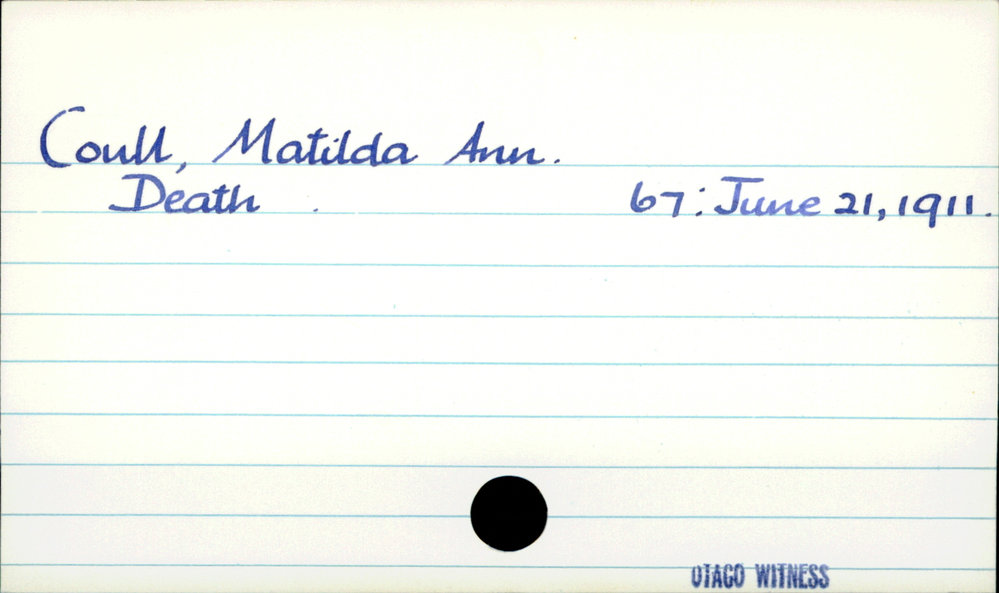 Coull, Matilda Ann.
Death . 67: June 21, 1911.
OTAGO WITNESS